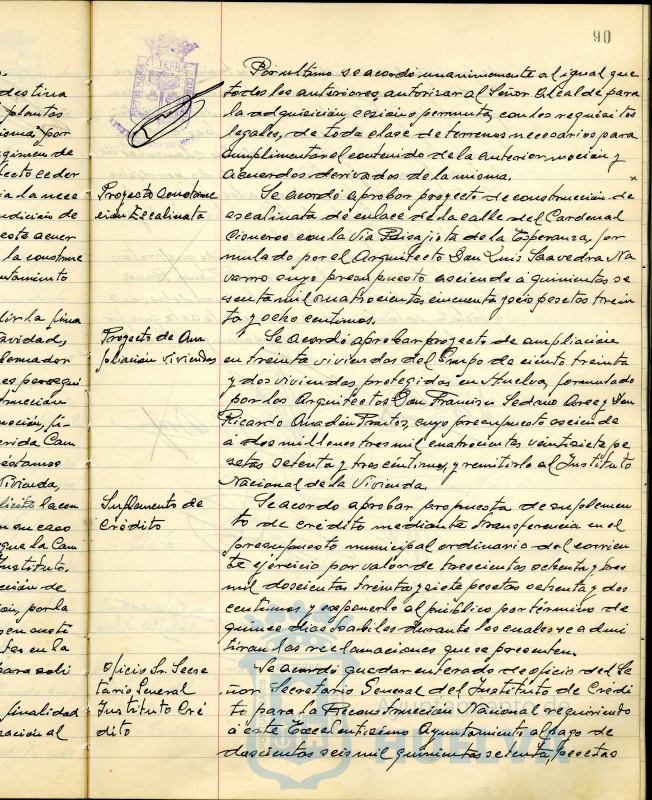 90
Por ultimo se acordó unanimemente al igual que
todos los anteriores, autorizar al Señor Alcalde para
la adquisición, cesión o permuta, con los requisitos
legales, de toda clase de terrenos necesarios para
cumplimentar el contenido de la anterior moción y
acuerdos derivados de la misma.
Proyecto Construc
ción Escalinata
Se acordó aprobar proyecto de construccion de
escalinata de enlace de la calle del Cardenal
Cisneros con la Vía Paisajista de la Esperanza, for
mulado por el Arquitecto Don Luis Saavedra Na
varro cuyo presupuesto asciende á quinientas se
senta mil cuatrocientas cincuenta y seis pesetas trein
ta y ocho centimos.
Proyecto de Am
pliación viviendas
Se acordó aprobar proyecto de ampliación
en treinta viviendas del Grupo de ciento treinta
y dos viviendas protegidas en Huelva, formulado
por los Arquitectos Don Francisco Sedano Arce y Don
Ricardo Anadón Frutos, cuyo presupuesto asciende
á dos millones tres mil cuatrocientas veintisiete pe
setas setenta y tres céntimos, y remitirlo al Instituto
Nacional de la Vivienda.
Suplemento de
Crédito
Se acordo aprobar propuesta de suplemen
to de crédito mediante transferencia en el
presupuesto municipal ordinario del corrien
te ejercicio por valor de trescientas setenta y tres
mil doscientas treinta y siete pesetas setenta y dos
centimos y exponerlo al público por término de
quince dias habiles durante los cuales se admi
tiran las reclamaciones que se presenten.
Oficio Sr. Secre
tario General
Instituto Cré
dito
Se acordó quedar enterado de oficio del Se
ñor Secretario General del Instituto de Crédi
to para la Reconstrucción Nacional requiriendo
á este Excelentisimo Ayuntamiento al pago de
doscientas seis mil quinientas setenta, pesetas